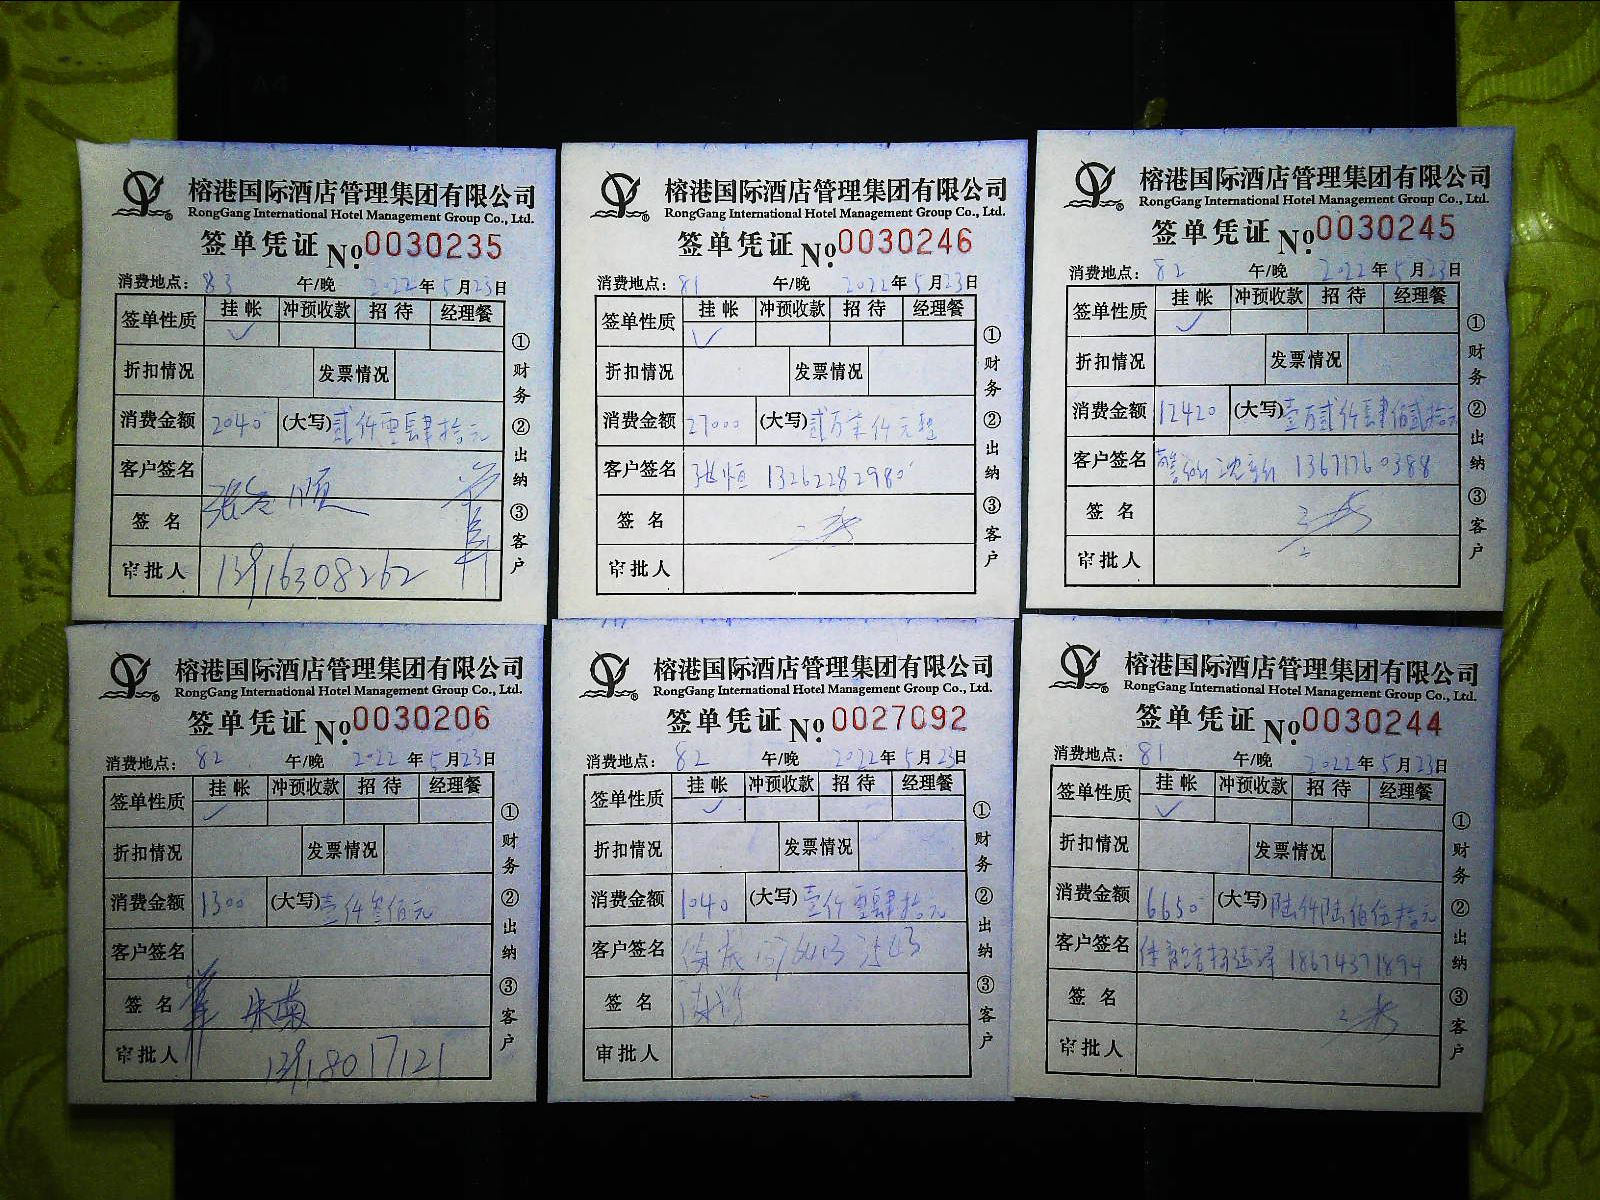 榕港国际酒店管理集团有限公司
RongGang International Hotel Management Group Co., Ltd.
签单凭证 No. 0030235
消费地点: 83 午/晚 2022年5月23日
签单性质 挂帐 冲预收款 招待 经理餐
✓
折扣情况 发票情况
消费金额 2040 (大写) 贰仟零肆拾元
客户签名
签名
审批人 13916308262
①财务 ②出纳 ③客户
榕港国际酒店管理集团有限公司
RongGang International Hotel Management Group Co., Ltd.
签单凭证 No. 0030246
消费地点: 81 午/晚 2022年5月23日
签单性质 挂帐 冲预收款 招待 经理餐
✓
折扣情况 发票情况
消费金额 27000 (大写) 贰万柒仟元整
客户签名 张恒 13262282980
签名
审批人
①财务 ②出纳 ③客户
榕港国际酒店管理集团有限公司
RongGang International Hotel Management Group Co., Ltd.
签单凭证 No. 0030245
消费地点: 82 午/晚 2022年5月23日
签单性质 挂帐 冲预收款 招待 经理餐
✓
折扣情况 发票情况
消费金额 12420 (大写) 壹万贰仟肆佰贰拾元
客户签名 13671760388
签名
审批人
①财务 ②出纳 ③客户
榕港国际酒店管理集团有限公司
RongGang International Hotel Management Group Co., Ltd.
签单凭证 No. 0030206
消费地点: 82 午/晚 2022年5月23日
签单性质 挂帐 冲预收款 招待 经理餐
✓
折扣情况 发票情况
消费金额 1300 (大写) 壹仟叁佰元
客户签名
签名 朱菊
审批人 13918017121
①财务 ②出纳 ③客户
榕港国际酒店管理集团有限公司
RongGang International Hotel Management Group Co., Ltd.
签单凭证 No. 0027092
消费地点: 82 午/晚 2022年5月23日
签单性质 挂帐 冲预收款 招待 经理餐
✓
折扣情况 发票情况
消费金额 1040 (大写) 壹仟零肆拾元
客户签名
签名
审批人
①财务 ②出纳 ③客户
榕港国际酒店管理集团有限公司
RongGang International Hotel Management Group Co., Ltd.
签单凭证 No. 0030244
消费地点: 81 午/晚 2022年5月23日
签单性质 挂帐 冲预收款 招待 经理餐
✓
折扣情况 发票情况
消费金额 6650 (大写) 陆仟陆佰伍拾元
客户签名 18674371894
签名
审批人
①财务 ②出纳 ③客户